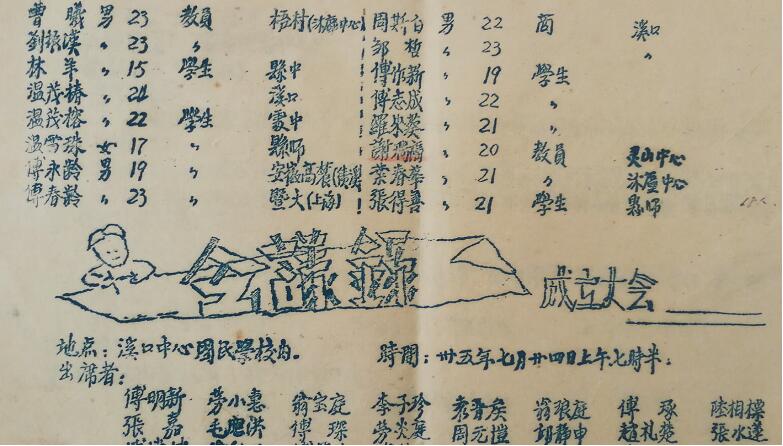 曹曦 男 23 教員 梧村(沐塵中心) 周斯白 男 22 商 溪口
劉振漢 〃 23 〃 鄒哲 〃 23 〃
林羊 〃 15 學生 縣中 傅作新 〃 19 學生
温茂椿 〃 21 溪口 傅志成 〃 22 〃
温茂榕 〃 22 學生 衢中 羅 〃 21 〃
温雪珠 女 17 〃 縣師 謝瑞 〃 20 教員 灵山中心
傅永齡 男 19 〃 安徽高農 葉春華 〃 21 〃 沐塵中心
傅春齡 〃 23 〃 暨大(上海) 張得善 〃 21 學生 縣師
會議錄 成立大会
地点：溪口中心國民學校内。 時間：卅五年七月廿四日上午七時半.
出席者：
傅明新 勞小惠 翁宝庭 李子珍 翁狼庭 傅琢 陸相標
張嘉 毛 洪 傅琛 勞炎庭 周元愷 邱静中 趙礼楚 張水逢